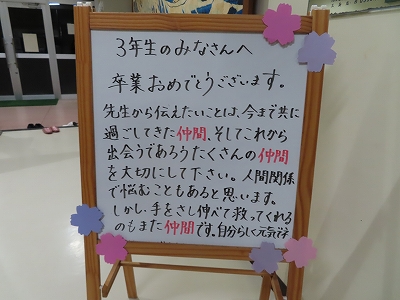 3年生のみなさんへ
卒業おめでとうございます。
先生から伝えたいことは、今まで共に
過ごしてきた仲間、そしてこれから
出会うであろうたくさんの仲間
を大切にして下さい。人間関係
で悩むこともあると思います。
しかし、手をさし伸べて救ってくれる
のもまた仲間です。自分らしく元気で